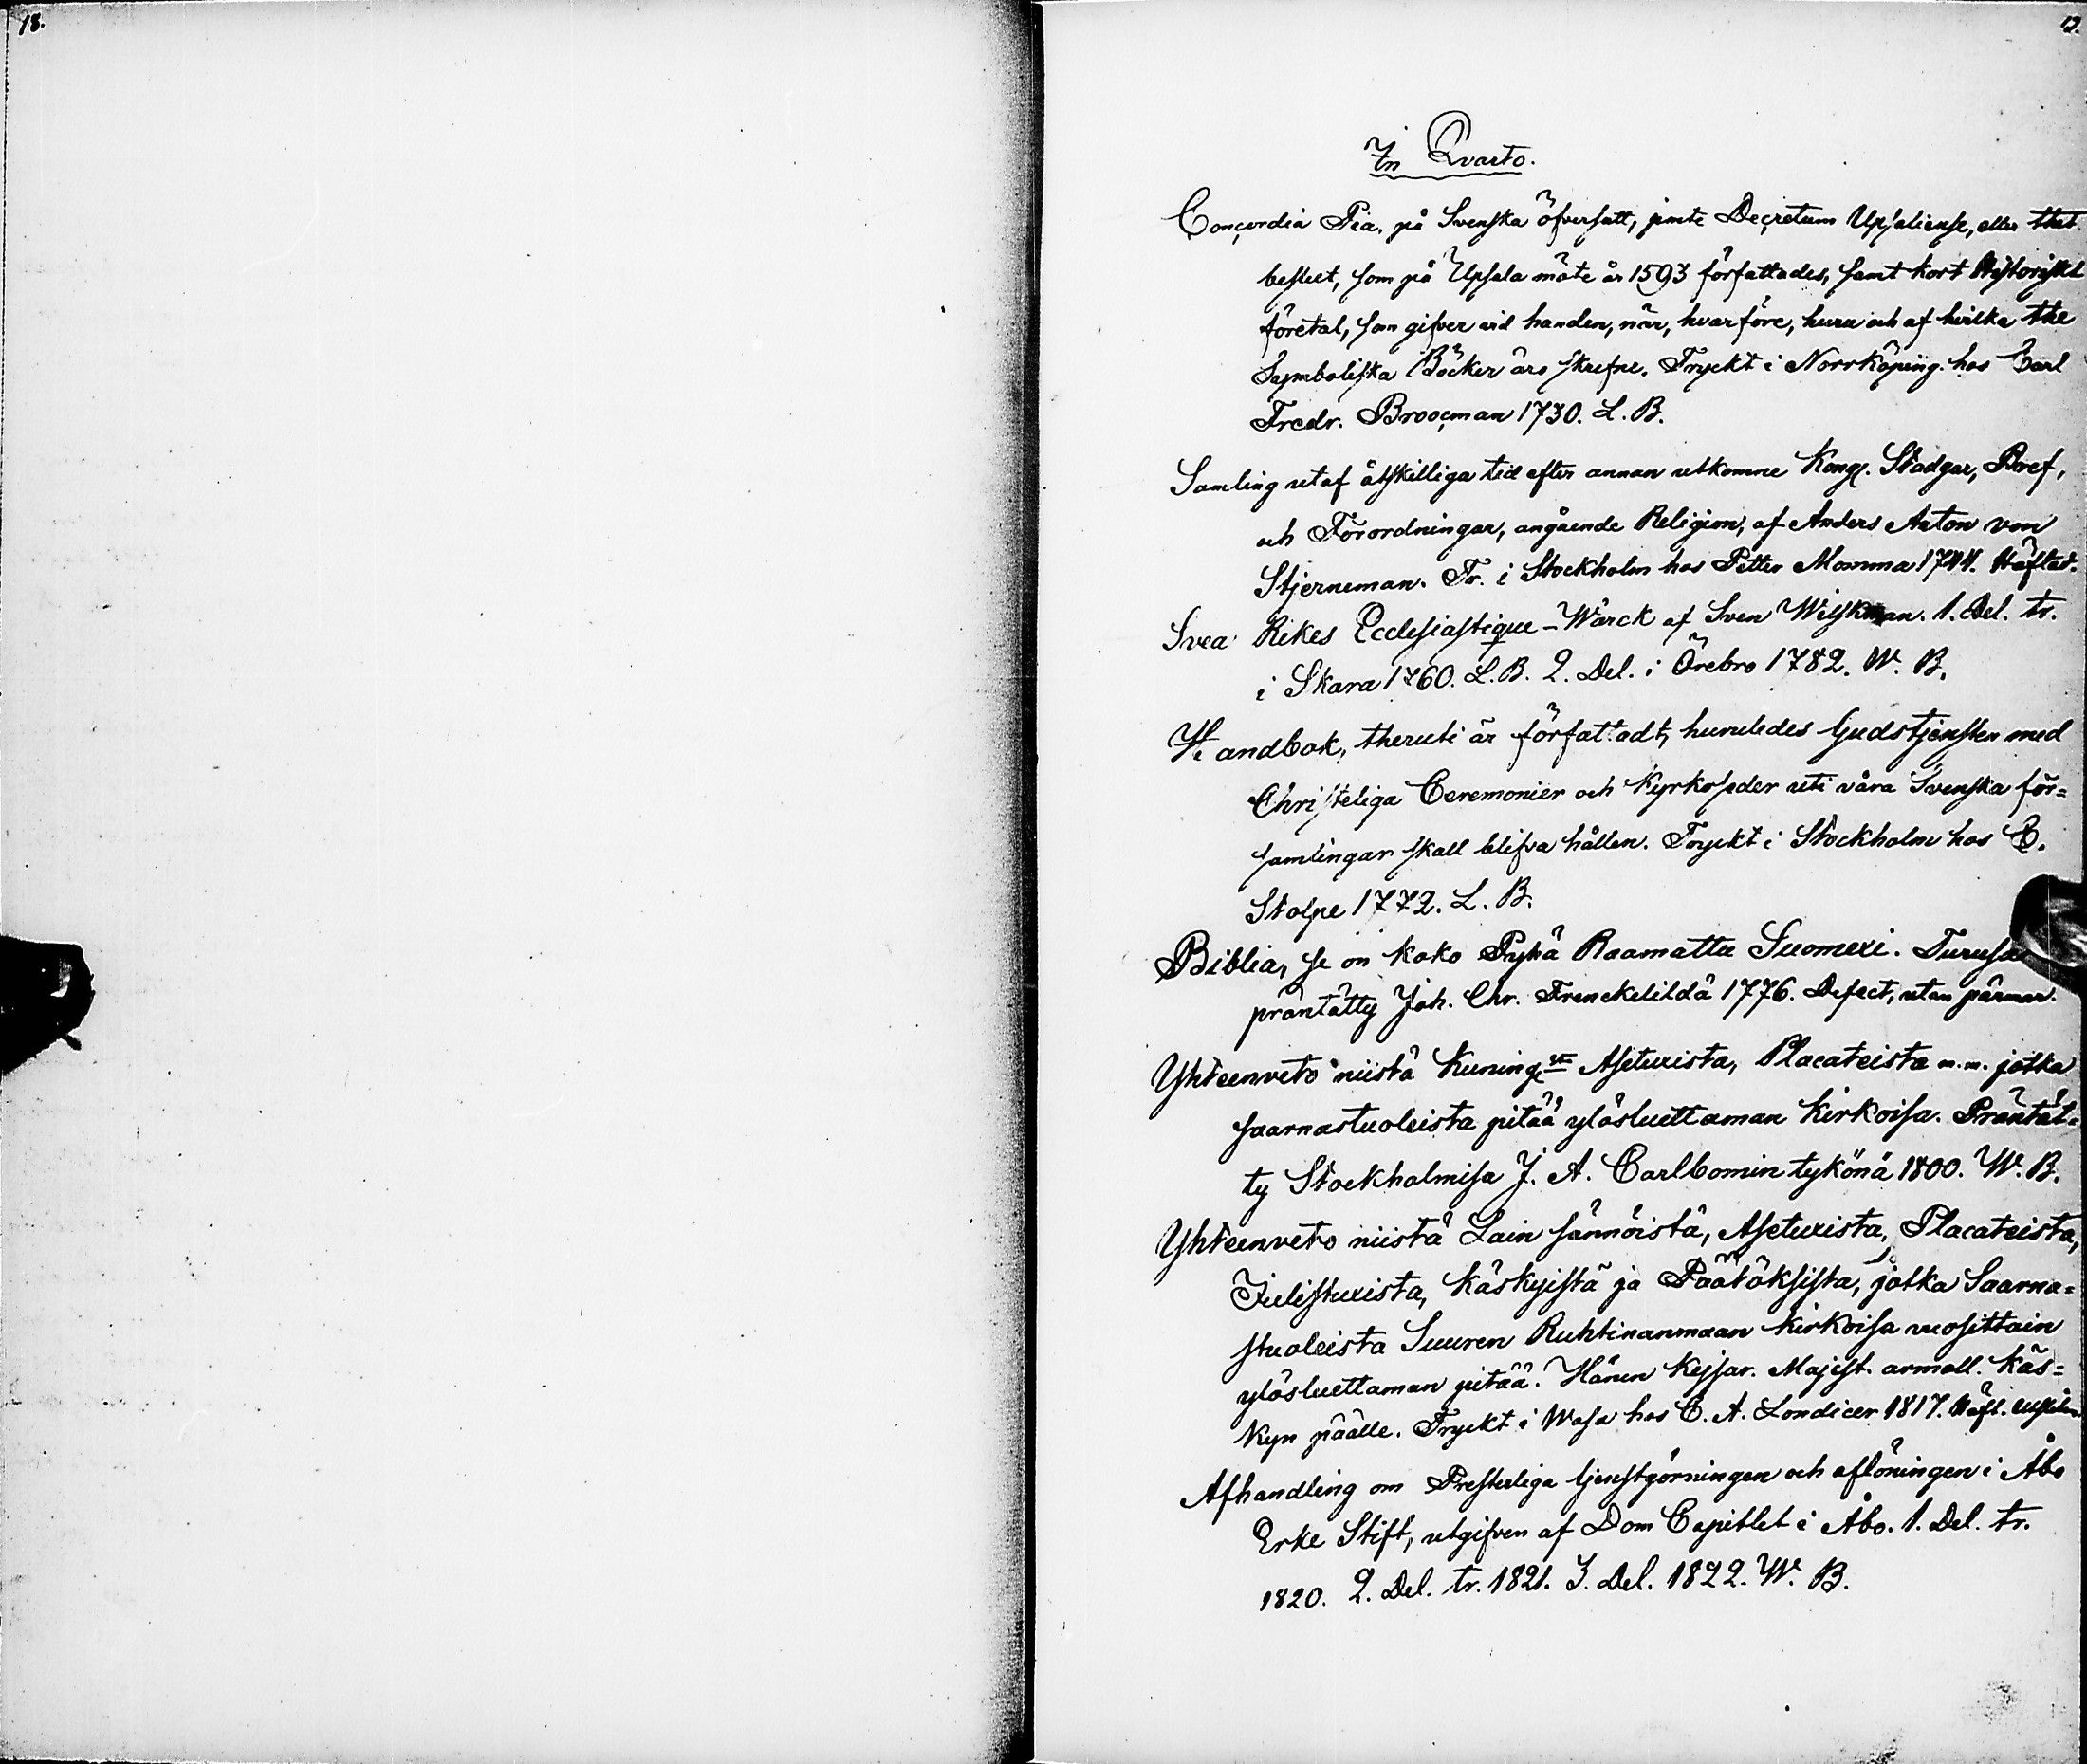 18.
19.
In Qvarto.
Concordia Pia, på Svenska öfversatt, jemte Decretum Upsaliense, eller thet
beslut, som på Upsala möte år 1593 författades, samt kort Historiskt
företal, som gifver vid handen, när, hvarföre, huru och af hvilka the
Symboliska Böcker äro skrefne. Tryckt i Norrköping hos Carl
Fredr. Broocman 1730. L. B.
Samling utaf åtskilliga tid efter annan utkomne Kongl. Stadgar, Bref,
och Förordningar, angående Religion, af Anders Anton von
Stjerneman. Tr. i Stockholm hos Petter Momma 1744. Häftad.
Svea Rikes Ecclesiastique-Wärck af Sven Wilskman. 1. Del. tr.
i Skara 1760. L. B. 2. Del. i Örebro 1782. W. B.
Handbok, theruti är författadt, huruledes Gudstjensten med
Christeliga Ceremonier och Kyrkoseder uti våra Svenska för=
samlingar skall blifva hållen. Tryckt i Stockholm hos C.
Stolpe 1772. L. B.
Biblia, se on koko Pyhä Raamattu Suomexi. Turusa
präntätty Joh. Chr. Frenckelildä 1776. Defect, utan pärmar.
Yhteenveto niistä Kuningl. Asetuxista, Placateista m.m. jotka
saarnastuoleista pitää ylösluettaman kirkoisa. Präntät=
ty Stockholmisa J. A. Carlbomin tykönä 1800. W. B.
Yhteenveto niistä Lain sännöistä, Asetuxista, Placateista,
Julistuxista, Käskyistä ja Päätöksista, jotka Saarna=
stuoleista Suuren Ruhtinanmaan kirkoisa vuosittain
ylösluettaman pitää. Hänen Keisar. Majest. armoll. Käs=
kyn päälle. Tryckt i Wasa hos C. A. Londicer 1817. Häft.
Afhandling om Presterliga tjenstgörningen och aflöningen i Åbo
Erke Stift, utgifven af Dom Capitlet i Åbo. 1. Del. tr.
1820. 2. Del. tr. 1821. 3. Del. 1822. W. B.